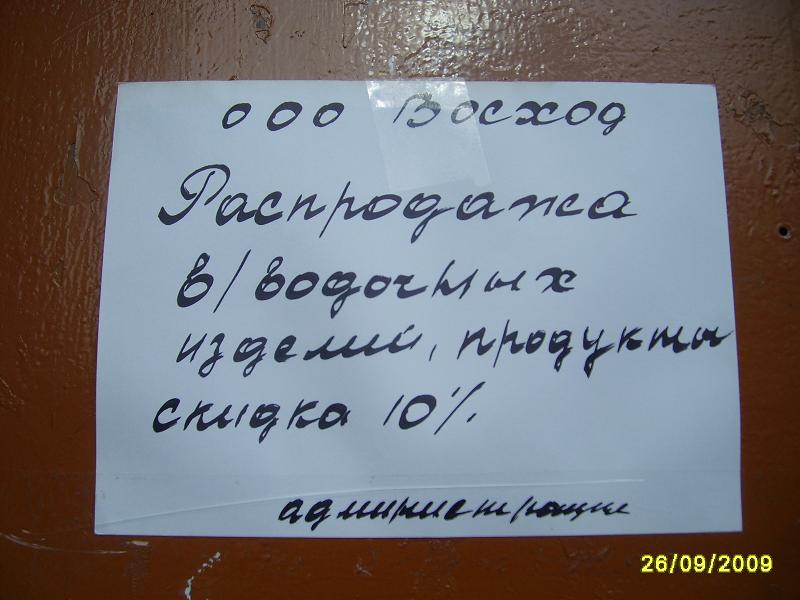 ООО Восход
Распродажа
в/водочных
изделий, продукты
скидка 10%
администрация
26/09/2009